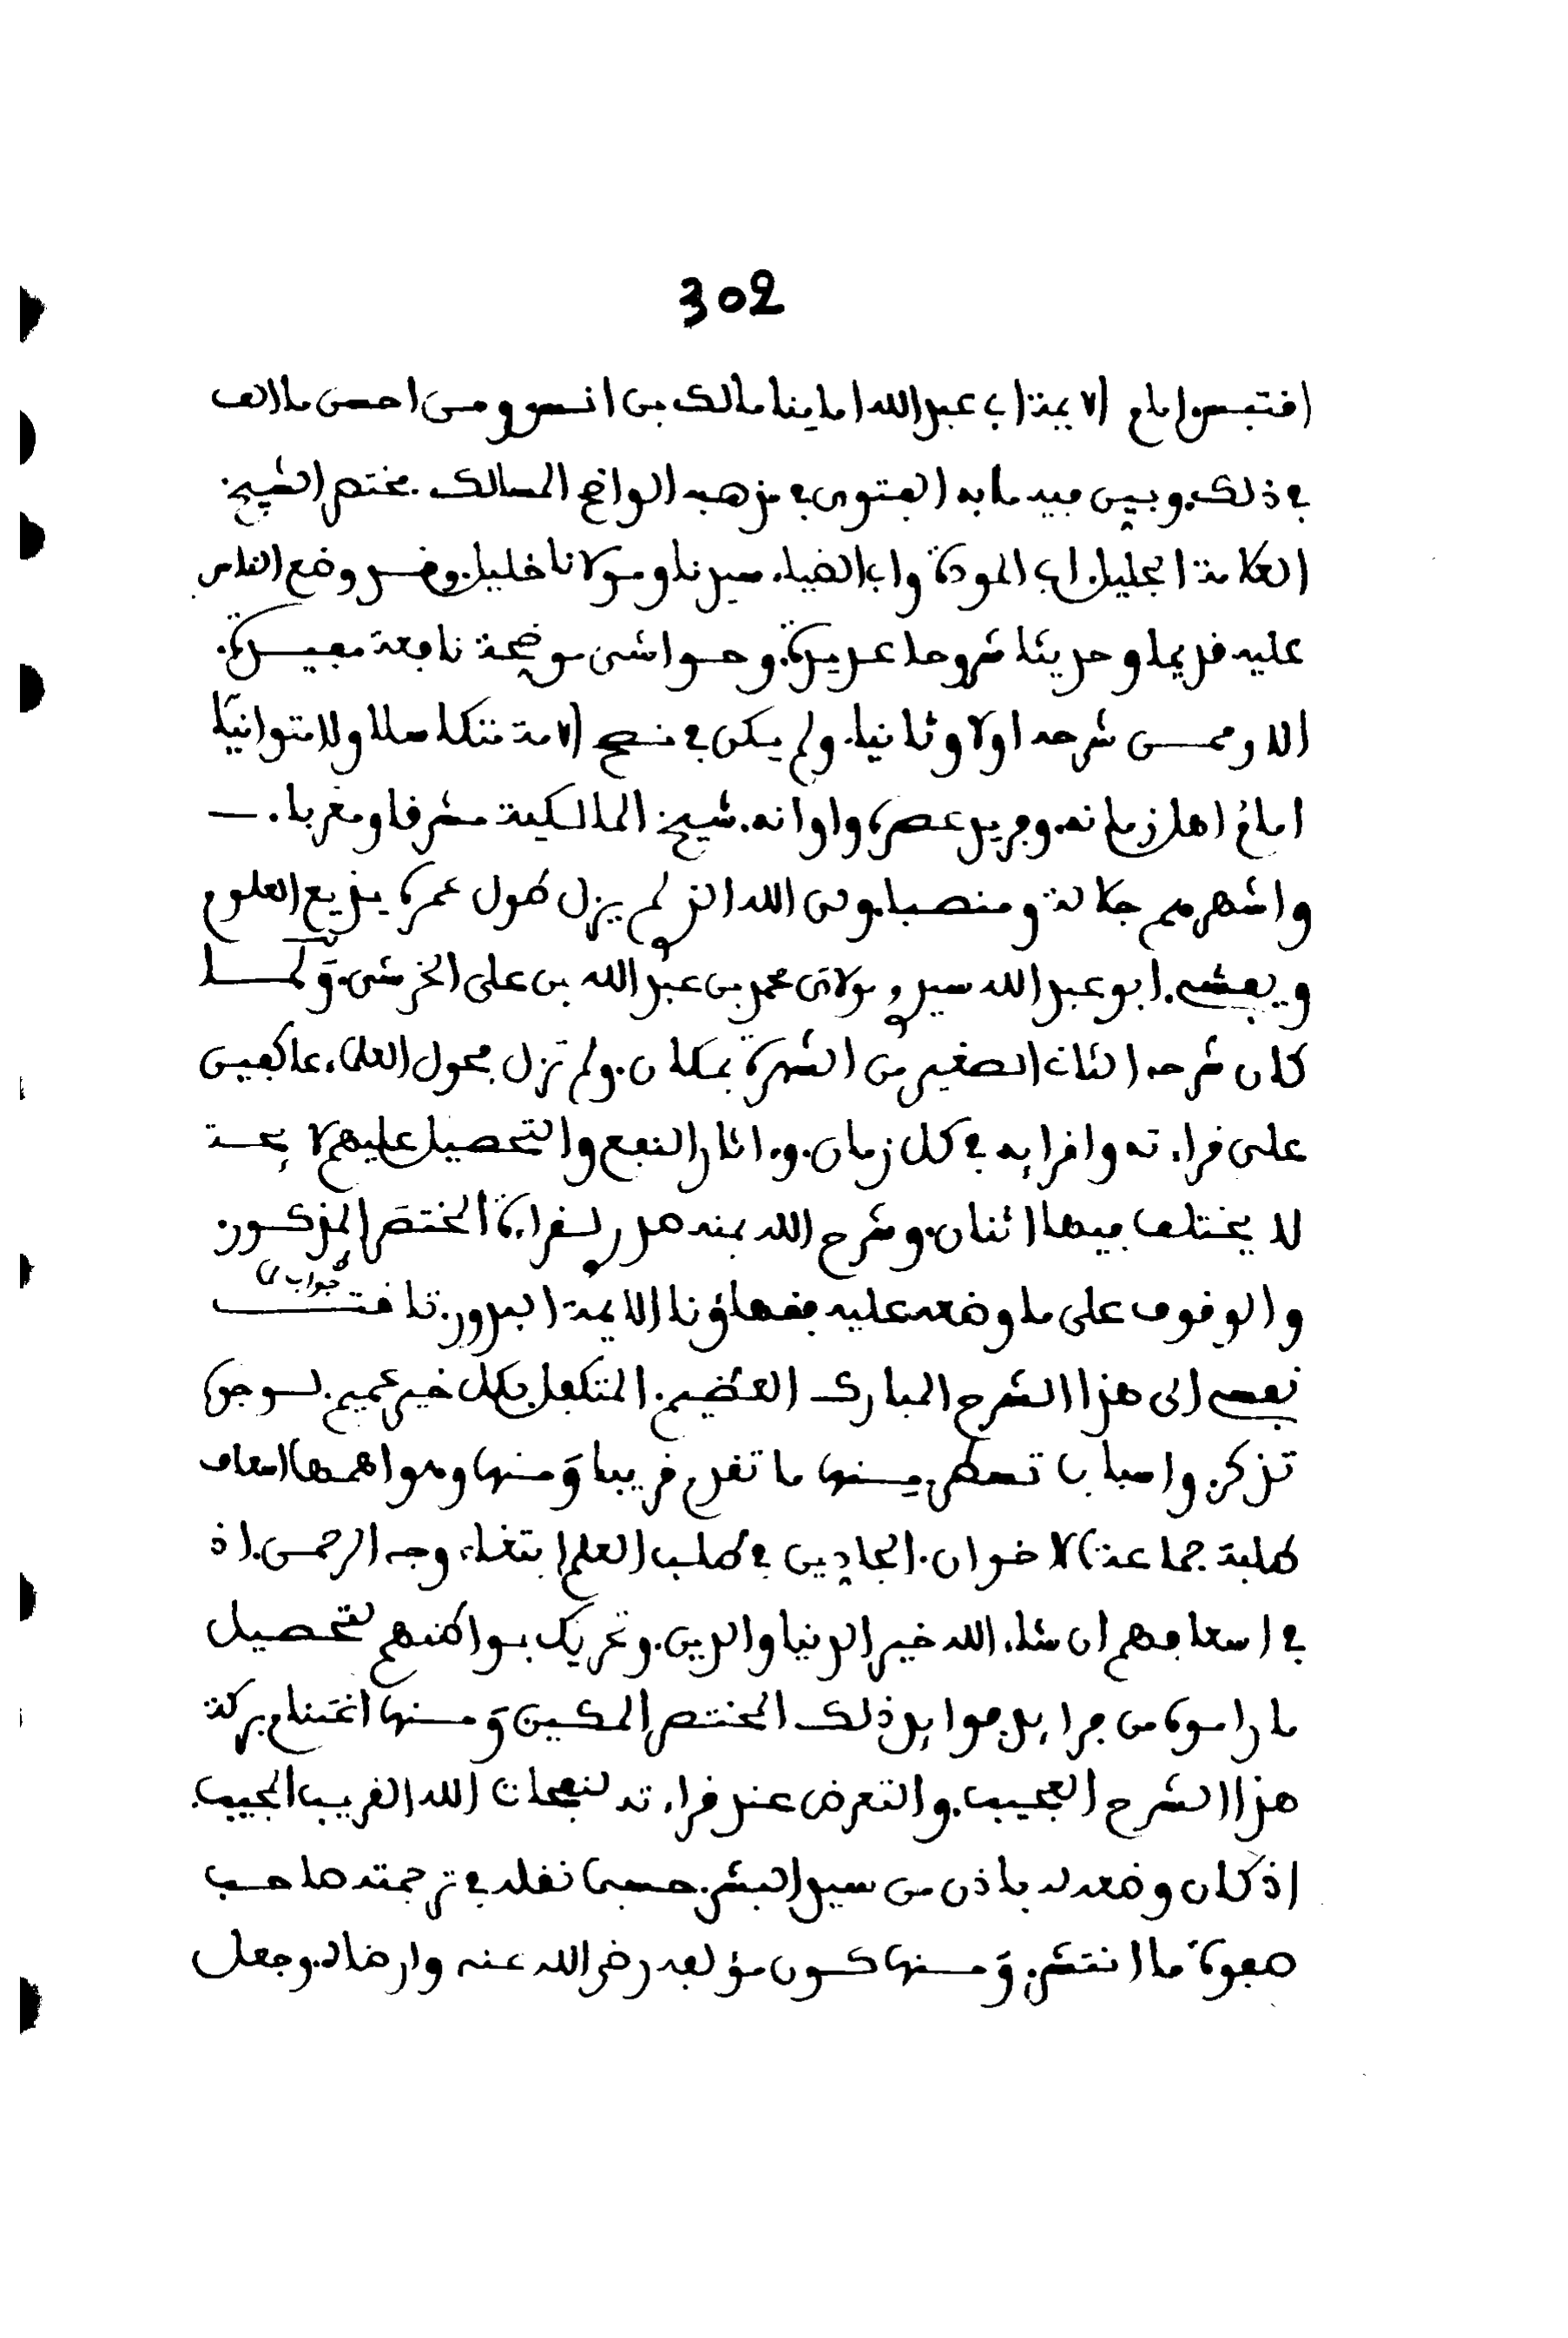 302
اقتبس امام الايمة اب عبد الله امامنا مالك بن انس ومن احسن ما الف
في ذلك. وبين فيه ما به الفتوى في مذهبه الواضح المسالك. مختصر الشيخ.
العلامة الجليل. ابي المودة وابي الضياء. سيدنا ومولانا خليل. وقد وضع الناس
عليه قديما وحديثا شروحا عديدة. وحواشى موضحة نافعة مفيدة.
الا وممن شرحه اولا وثانيا. ولم يكن في نصح الامة متكاسلا ولا متوانيًا
امام اهل زمانه. وفريد عصره واوانه. شيخ المالكية مشرقا ومغربا.
واشهرهم جلالة ومنصبا. ولى الله الذي لم يزل طول عمره يذيع العلوم
ويفشى. ابو عبد الله سيدي ومولاى محمد بن عبد الله بن على الخرشى. وَلمـا
كان شرحه الثانى الصغير من الشهرة بمكان. ولم تزل فحول العلماء عاكفين
على قراءته واقرايه في كل زمان. وءاثار النفع والتحصيل عليهم لايحـة
لا يختلف فيها اثنان. وشرح الله بمنه صدري لقراءة المختصَر المذكور.
والوقوف على ما وضعه عليه فقهاؤنا الايمة البدور. تاقـت جواب لما
نفسى الى هذا الشرح المبارك العظيم. المتكفل بكل خير عميم. لـوجوه
تذكر. واسباب تسطر. منها ما تقدم قريبا وَمنها وهو اهمها اسعاف
طلبة جماعة الاخوان. الجادين في طلب العلم ابتغاء وجه الرحمن. اذ
في اسعافهم ان شاء الله خير الدنيا والدين. وتحريك بواطنهم لتحصيل
ما راموه من فرايد فوايد ذلك المختصر المكين وَمنها اغتنام بركة
هذا الشرح العجيب. والتعرض عند قراءته لنفحات الله القريب المجيب.
اذ كان وضعه له باذن من سيد البشر. حسبما نقله في ترجمته صاحب
صفوة ما انتشر. وَمنها كون مؤلفه رضي الله عنه وارضاه. وجعل